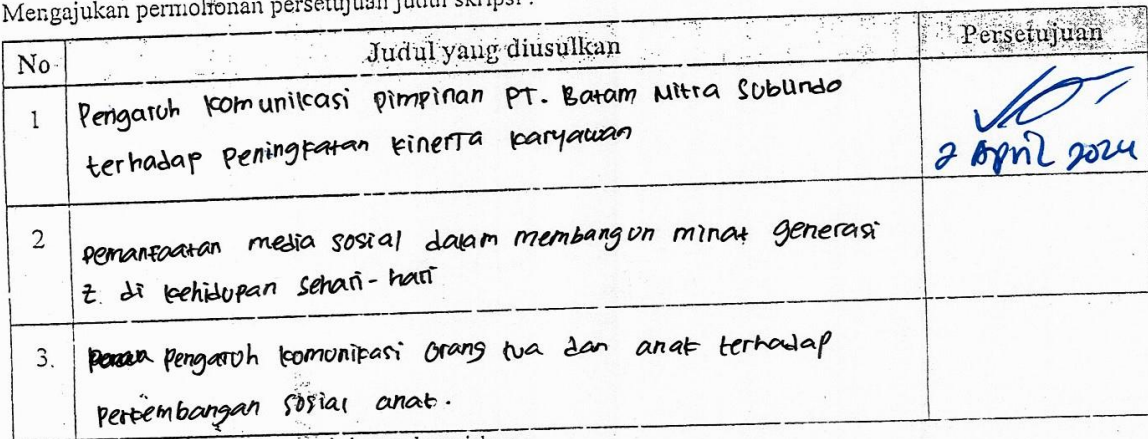 Mengajukan permohonan persetujuan judul skripsi :
No Judul yang diusulkan Persetujuan
1 Pengaruh komunikasi pimpinan PT. Batam Mitra Subindo
terhadap peningkatan kinerja karyawan
2 April 2024
2 pemanfaatan media sosial dalam membangun minat generasi
z. di kehidupan sehari-hari
3. Pengaruh komunikasi orang tua dan anak terhadap
perkembangan sosial anak.